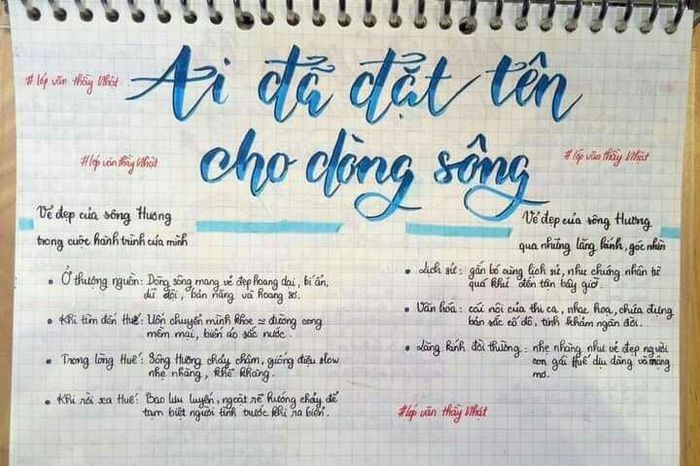 # lớp văn thầy Nhật
Ai đã đặt tên
cho dòng sông
# lớp văn thầy Nhật
# lớp văn thầy Nhật
Vẻ đẹp của sông Hương
trong cuộc hành trình của mình
• Ở thượng nguồn: Dòng sông mang vẻ đẹp hoang dại, bí ẩn,
dữ dội, bản năng và hoang sơ.
• Khi tìm đến Huế: Uốn chuyển mình khoe = đường cong
mềm mại, biến ảo sắc nước.
• Trong lòng Huế: Sông Hương chảy chậm, giống điệu slow
nhẹ nhàng, khẽ khàng.
• Khi rời xa Huế: Bao lưu luyến, ngoặt rẽ hướng chảy để
tạm biệt người tình trước khi ra biển.
Vẻ đẹp của sông Hương
qua những lăng kính, góc nhìn
• Lịch sử: gắn bó cùng lịch sử, như chứng nhân từ
quá khứ đến tận bây giờ.
• Văn hóa: cái nôi của thi ca, nhạc họa, chứa đựng
bản sắc cố đô, tính khảm ngàn đời.
• Lăng kính đời thường: nhẹ nhàng như vẻ đẹp người
con gái Huế dịu dàng và mộng
mơ.
# lớp văn thầy Nhật